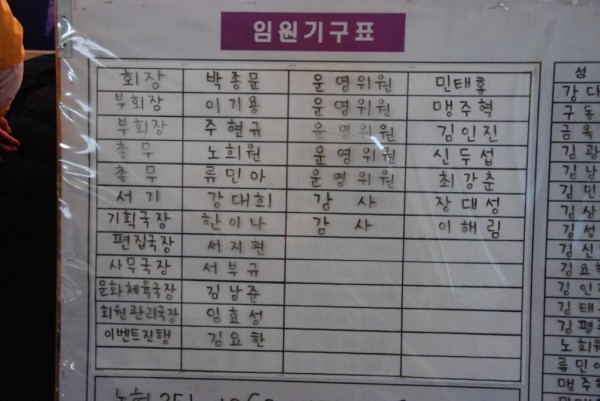 임원기구표
회장 박종문 운영위원 민태홍
부회장 이기용 운영위원 맹주혁
부회장 주현규 운영위원 김인진
총무 노희원 운영위원 신두섭
총무 류민아 운영위원 최강춘
서기 강대희 감사 장대성
기획국장 한이나 감사 이해림
편집국장 서지현
사무국장 서부규
문화체육국장 김남준
회원관리국장 임효성
이벤트진행 김요한
성
강대
구동
금옥
김광
김남
김민
김상
김성
김신
김요한
김인
김태
김평
노희원
류민아
맹주혁